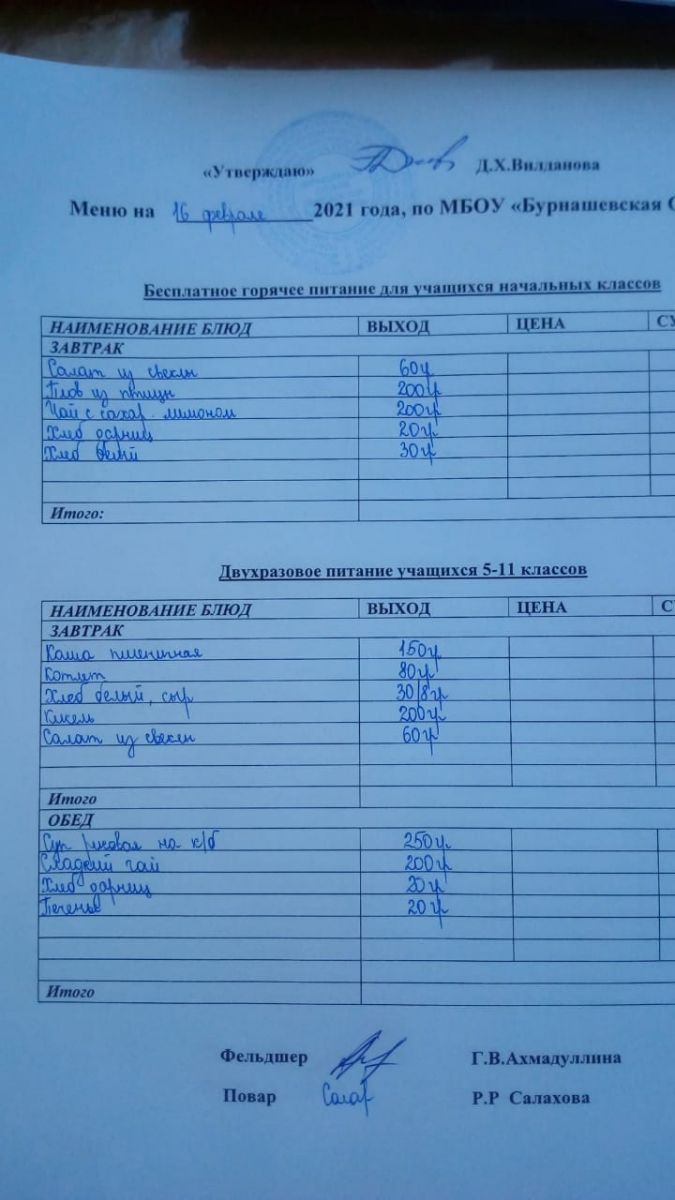 «Утверждаю» Д.Х.Вилданова
Меню на 16 феврале 2021 года, по МБОУ «Бурнашевская С
Бесплатное горячее питание для учащихся начальных классов
НАИМЕНОВАНИЕ БЛЮД ВЫХОД ЦЕНА СУ
ЗАВТРАК
Салат из свеклы 60гр
Плов из птицы 200гр
Чай с сахар. лимоном 200гр
Хлеб дарниц 20гр
Хлеб белый 30гр
Итого:
Двухразовое питание учащихся 5-11 классов
НАИМЕНОВАНИЕ БЛЮД ВЫХОД ЦЕНА С
ЗАВТРАК
Каша пшеничная 150гр
Котлет 80гр
Хлеб белый, сыр 30/8гр
Кисель 200гр
Салат из свеклы 60гр
Итого
ОБЕД
Суп рисовая на к/б 250гр
Сладкий чай 200гр
Хлеб дарниц 20гр
Печенье 20гр
Итого
Фельдшер Г.В.Ахмадуллина
Повар Салах Р.Р Салахова